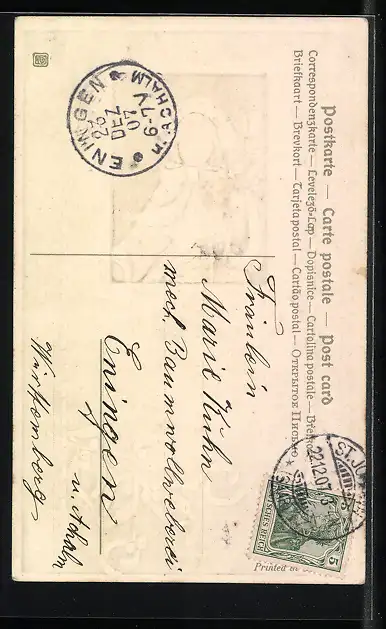 Postkarte — Carte postale — Post card
Correspondenzkarte — Levelező-Lap — Dopisnice — Cartolina postale —
Briefkaart — Brevkort — Tarjeta postal — Cartão postal — Открытое Письмо
ST. JO
22.12.07
DEUTSCHES REICH
5
Fräulein
Marie Kuhn
mech. Baumwollweberei
Eningen
u. Achalm
Württemberg
ENINGEN
u/ACHALM
24
DEZ
07
6-7V
Printed in